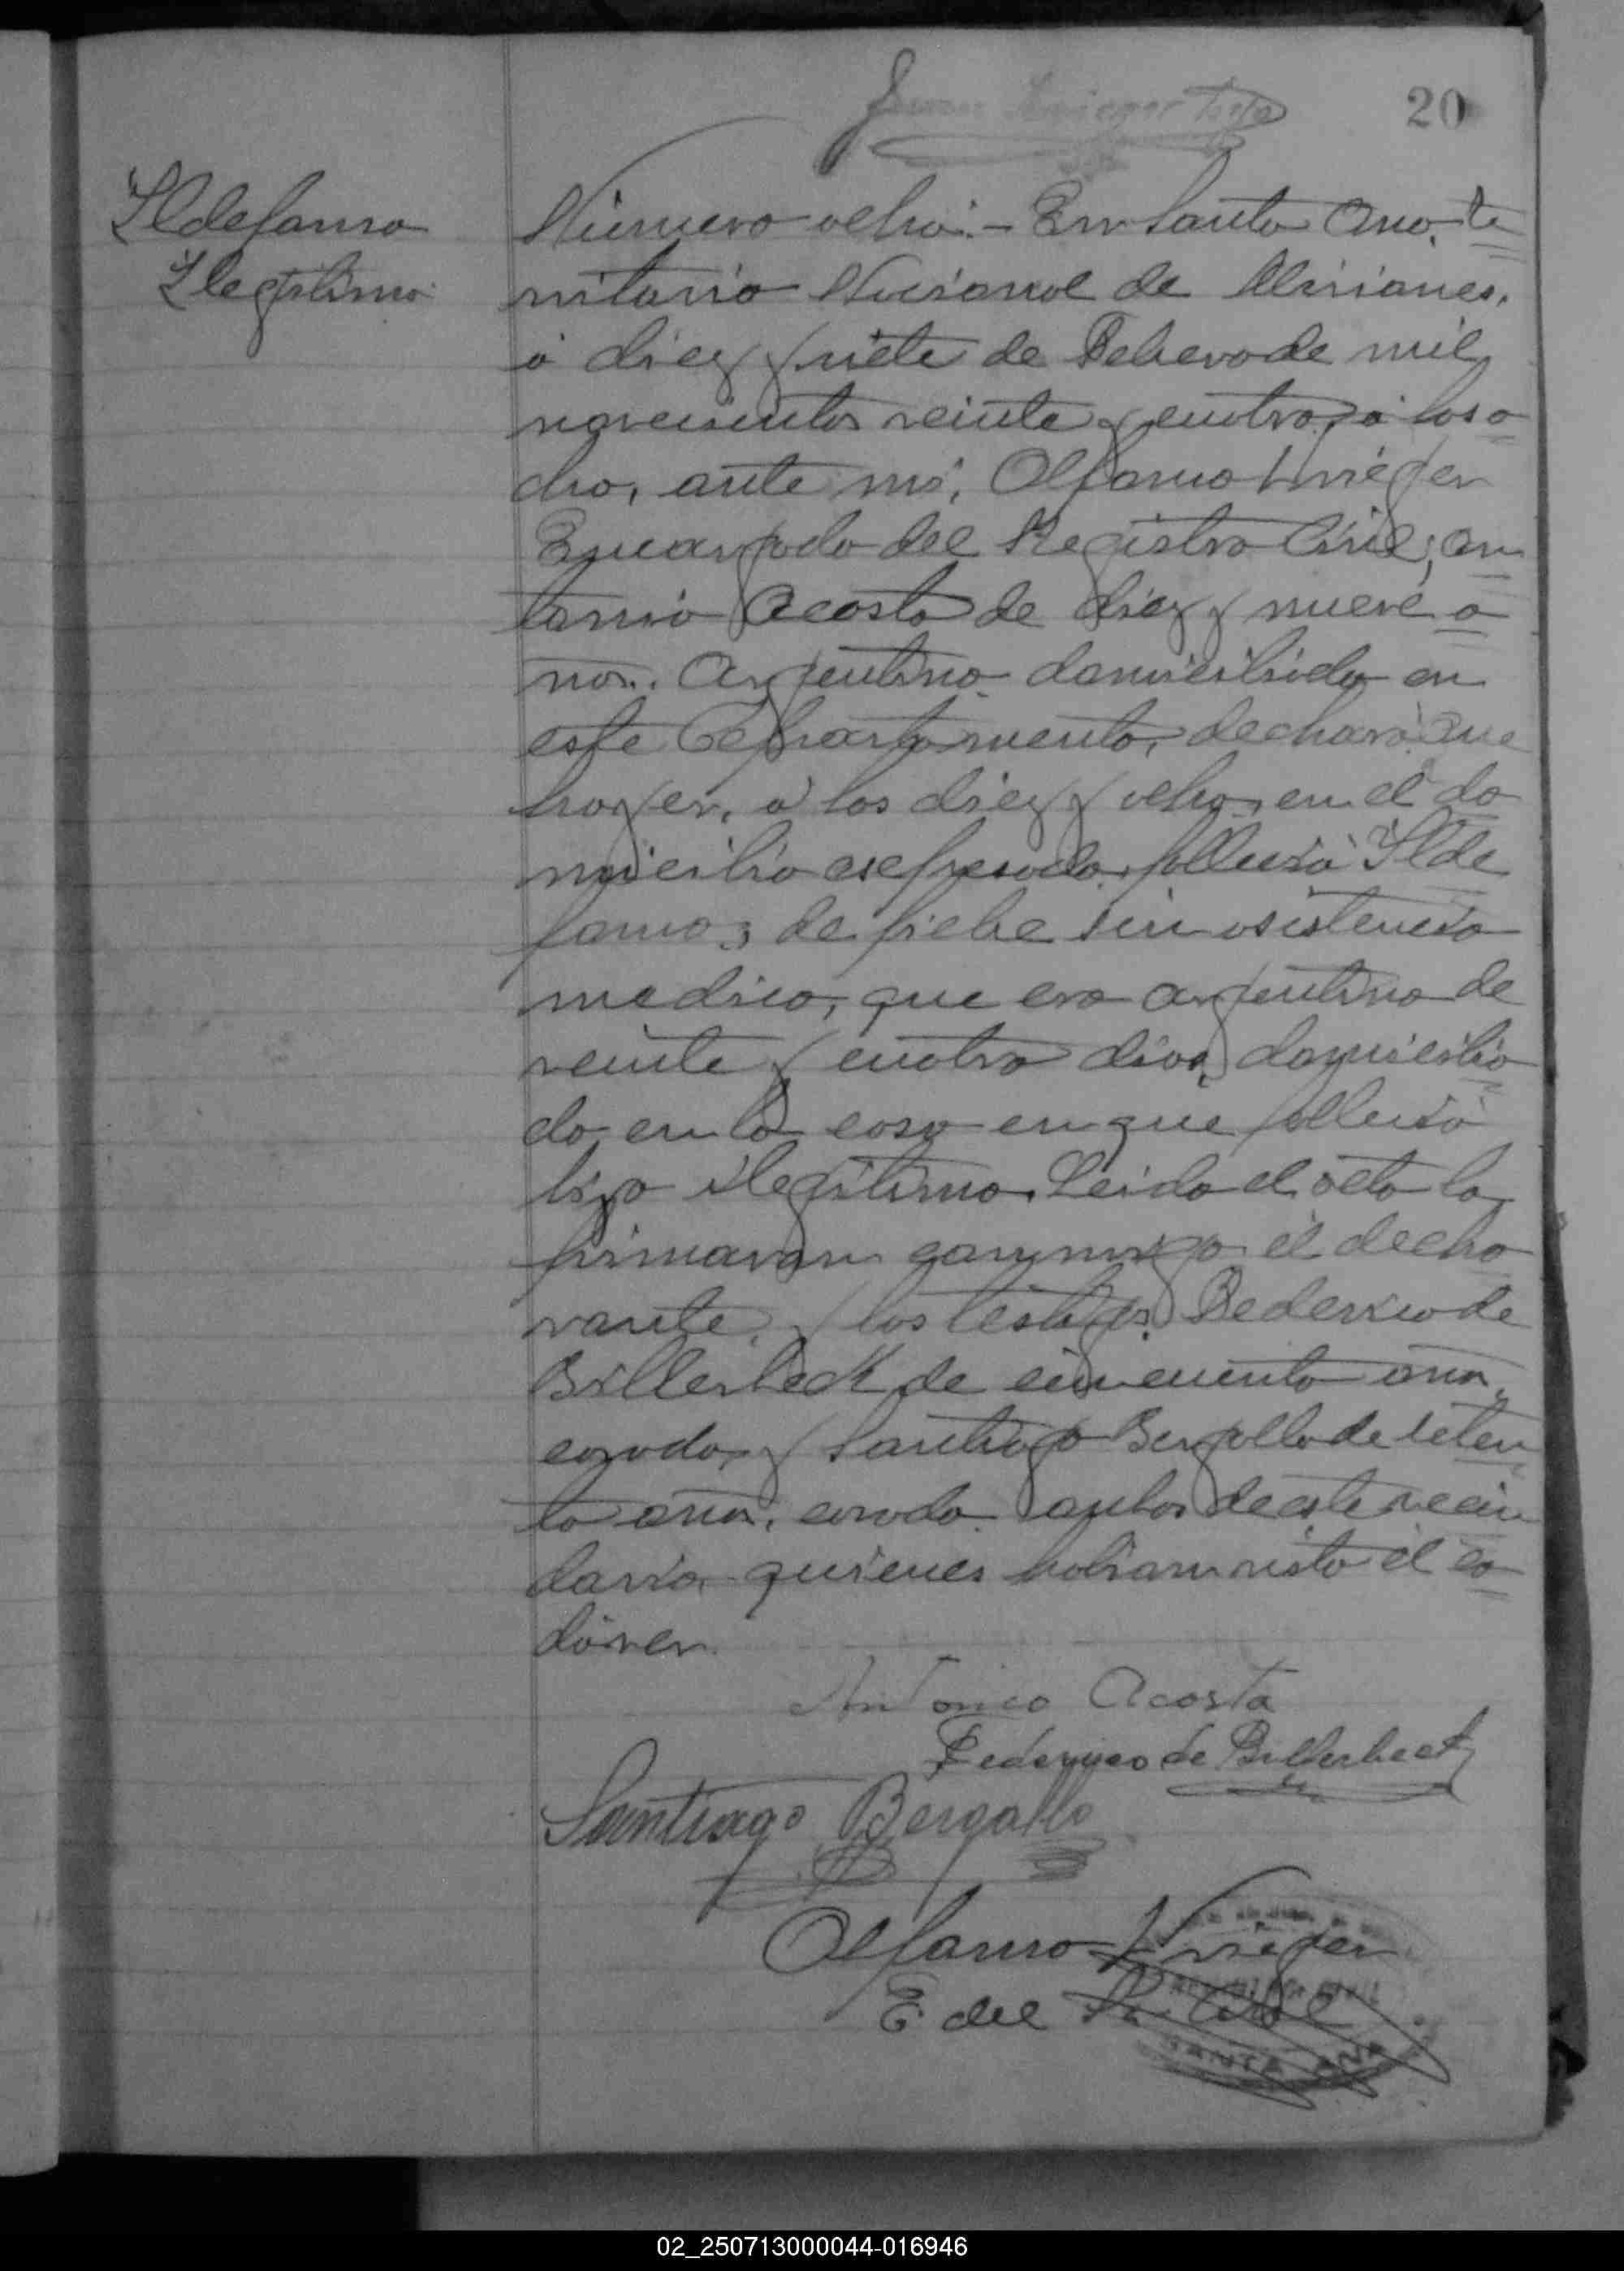 20
Ildefonso
Ilegitimo
Número ocho.- En Santa Ana, te
rritorio Nacional de Misiones,
á diez y siete de Febrero de mil
novecientos veinte y cuatro, á las o
cho, ante mi, Alfonso Krieger
Encargado del Registro Civil, An
tonio Acosta de diez y nueve a
ños, Argentino domiciliado en
este Departamento, declaró: Que
hayer, á las diez y ocho, en el do
micilio espresado, falleció Ilde
fonso, de fiebre sin asistencia
medica, que era argentino de
veinte y cuatro dias, domicilia
do en la casa en que falleció
hijo ilegitimo. Leida el acta la
firmaron conmigo el decla
rante, y los testigos Federico de
Billerbeck de cincuenta años
casado, y Santiago Bergallo de seten
ta años, casado ambos de este vecin
dario, quienes habian visto el ca
dáver.
Antonio Acosta
Federico de Billerbeck
Santiago Bergallo
Alfonso Krieger
E. del R. Civil
SANTA ANA